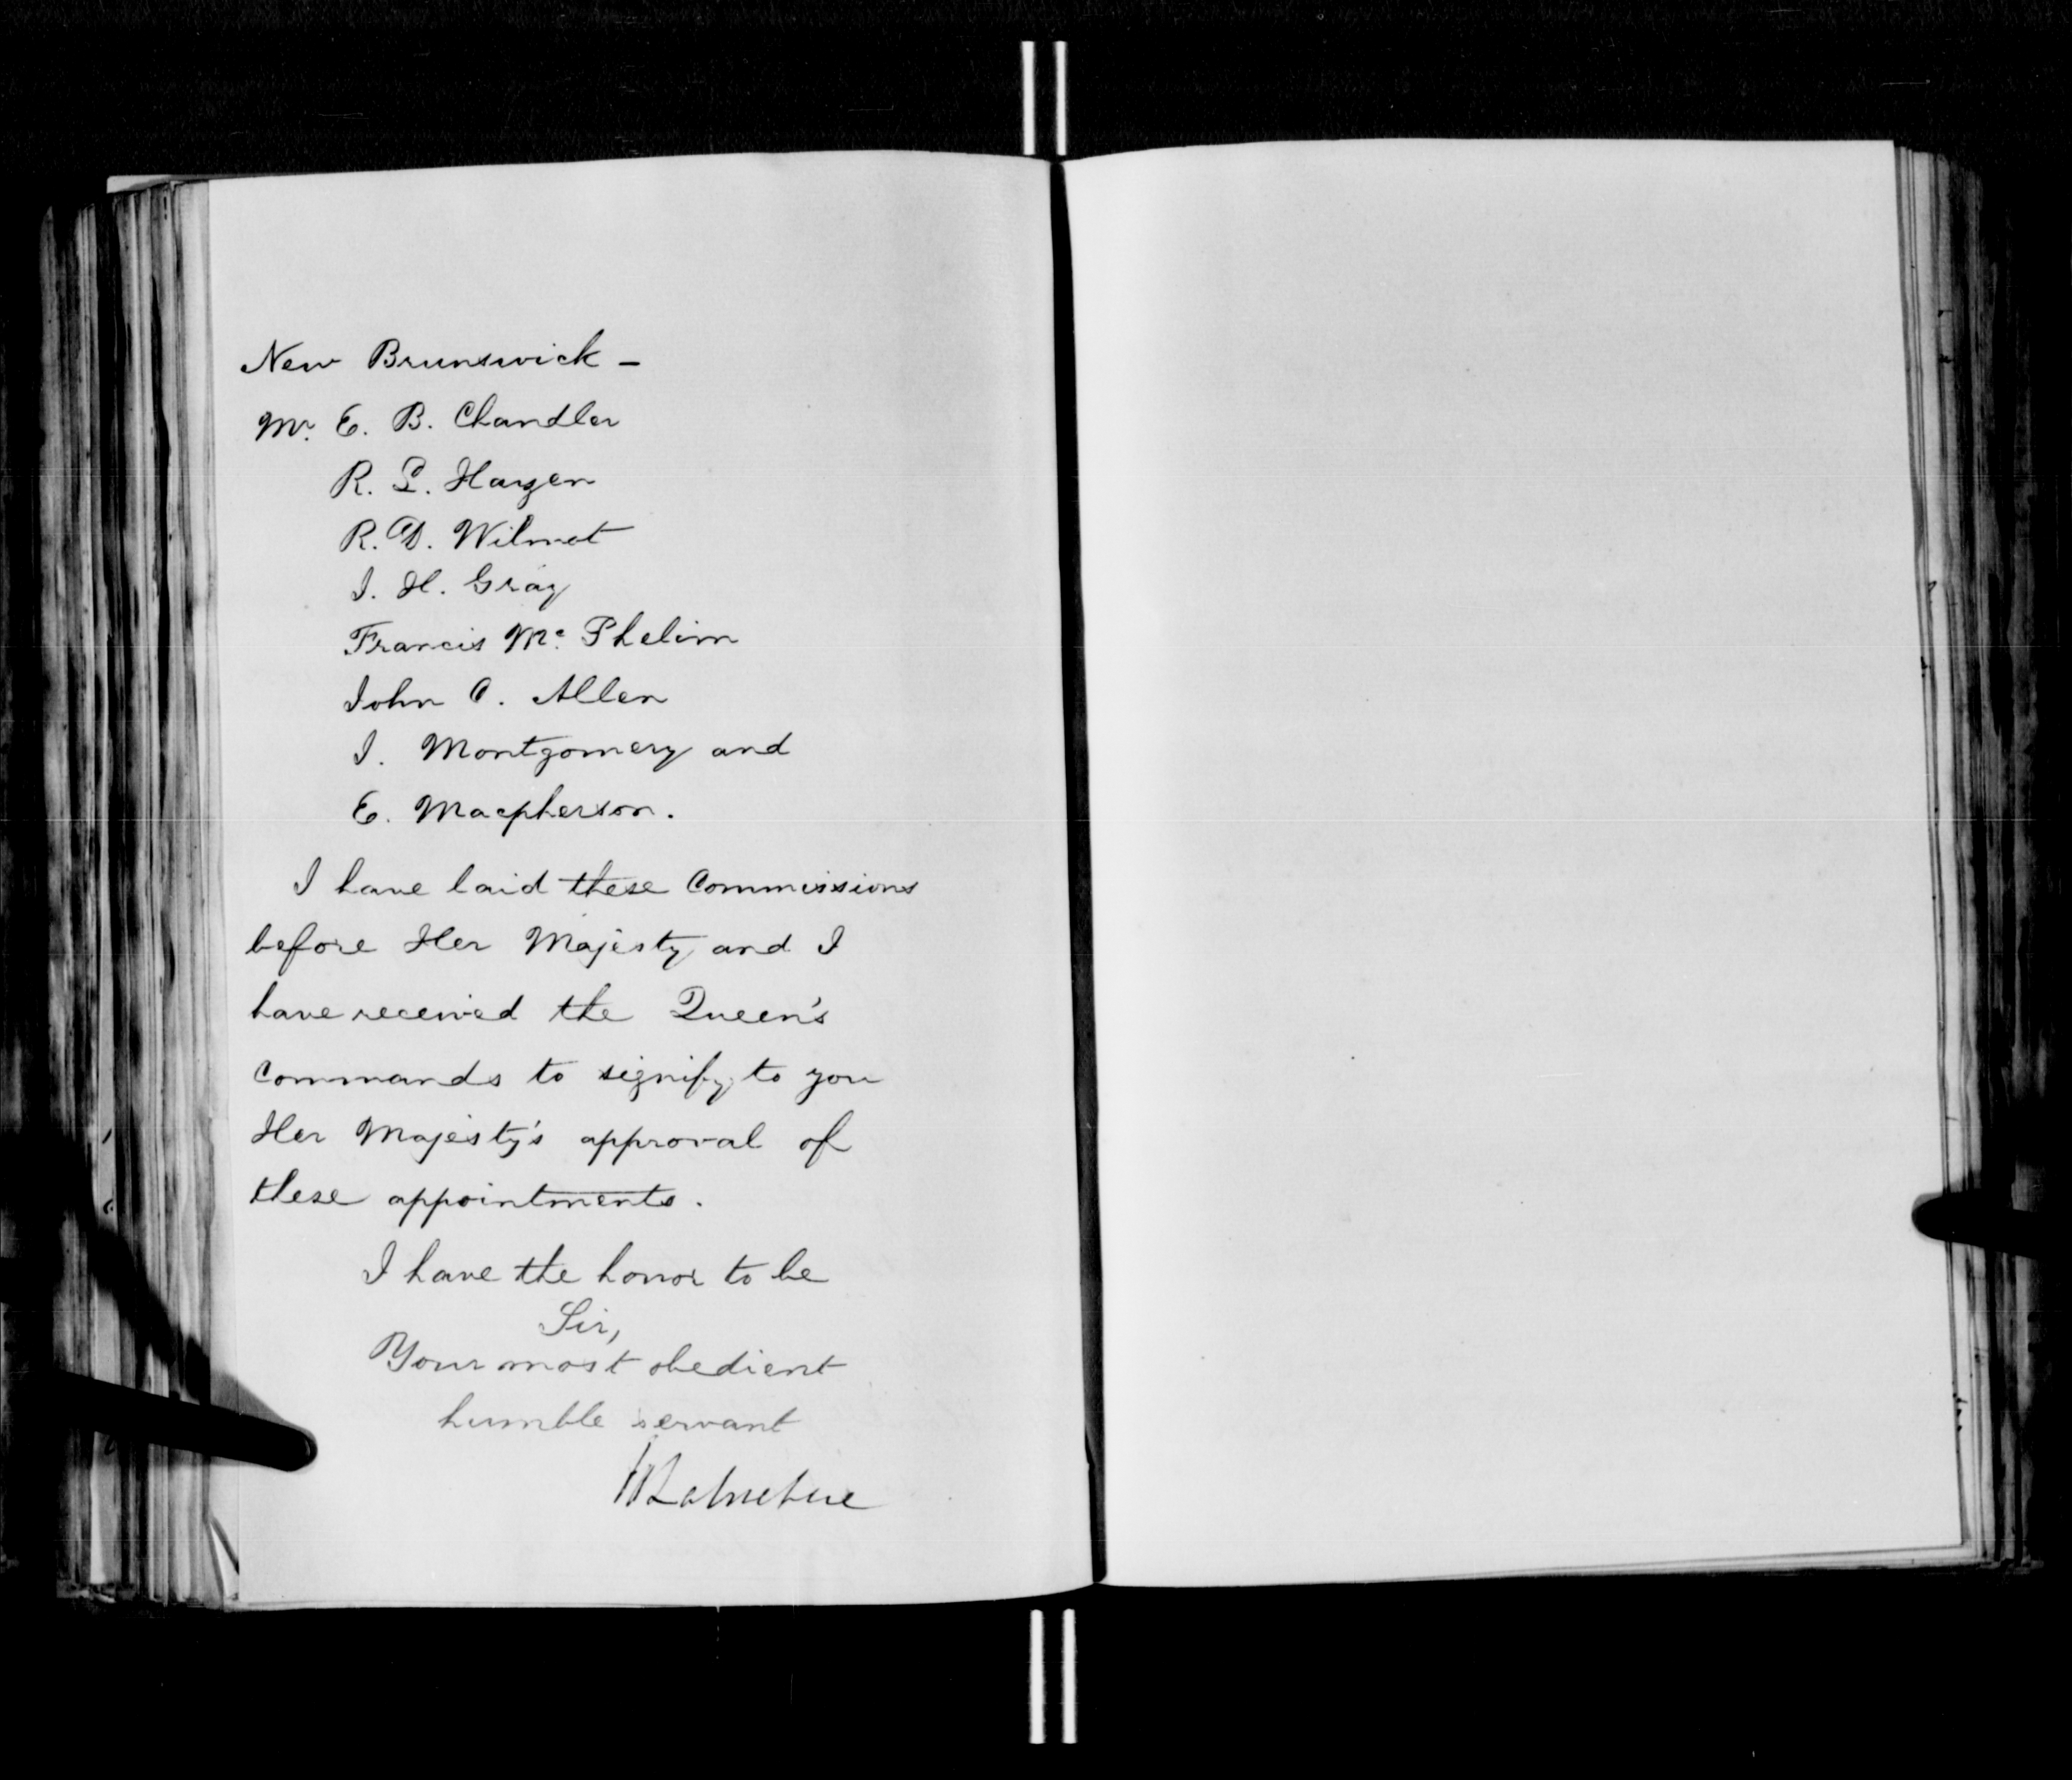 New Brunswick –
Mr. E. B. Chandler
R. L. Hazen
R. D. Wilmot
J. H. Gray
Francis Mc. Phelim
John C. Allen
J. Montgomery and
E. Macpherson.
I have laid these Commissions
before Her Majesty and I
have received the Queen's
Commands to signify to you
Her Majesty's approval of
these appointments.
I have the honor to be
Sir,
Your most obedient
humble servant
H Labouchere